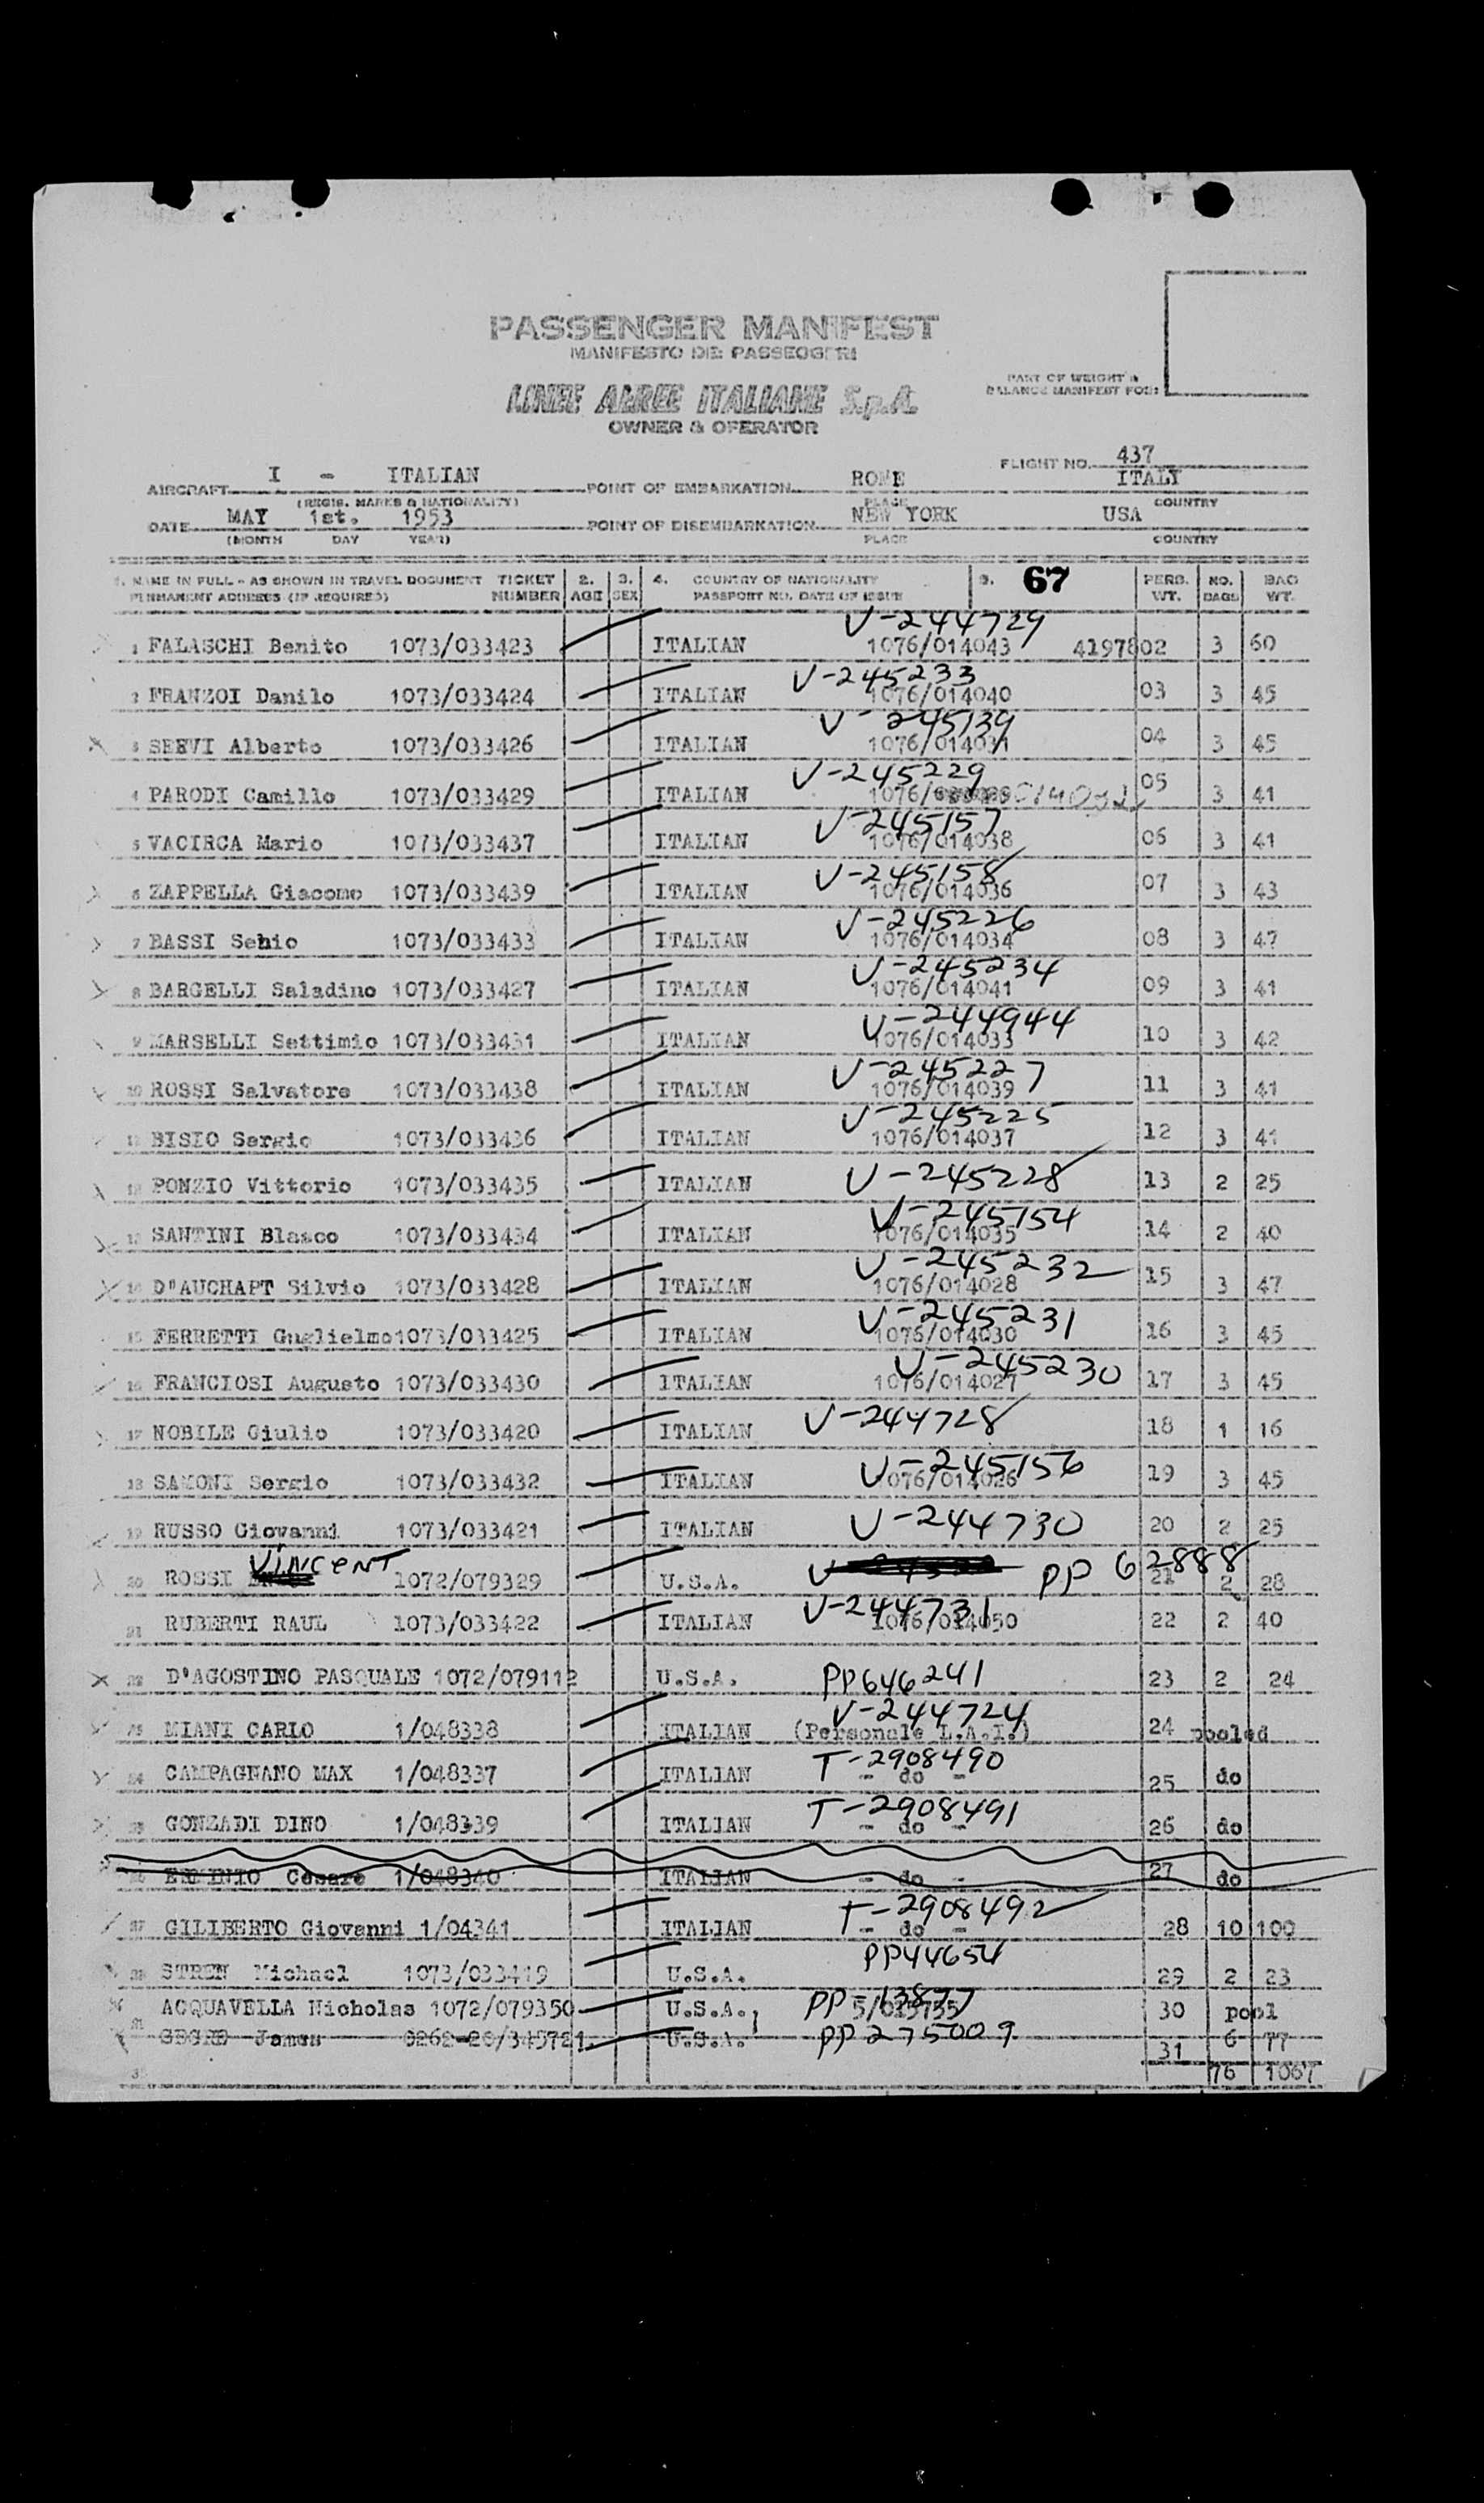 PASSENGER MANIFEST
MANIFESTO DEI PASSEGGERI
LINEE AEREE ITALIANE S.p.A.
OWNER & OPERATOR
PART OF WEIGHT &
BALANCE MANIFEST FOR:
FLIGHT NO. 437
AIRCRAFT I - ITALIAN POINT OF EMBARKATION ROME ITALY
(REGIS. MARKS & NATIONALITY) PLACE COUNTRY
DATE MAY 1st. 1953 POINT OF DISEMBARKATION NEW YORK USA
(MONTH DAY YEAR) PLACE COUNTRY
1. NAME IN FULL - AS SHOWN IN TRAVEL DOCUMENT TICKET 2. 3. 4. COUNTRY OF NATIONALITY 5. 67 PERS. NO. BAG
PERMANENT ADDRESS (IF REQUIRED) NUMBER AGE SEX PASSPORT NO. DATE OF ISSUE WT. BAGS WT.
V-244729
1 FALASCHI Benito 1073/033423 ITALIAN 1076/014043 4197802 3 60
V-245233
2 FRANZOI Danilo 1073/033424 ITALIAN 1076/014040 03 3 45
V-245139
3 SERVI Alberto 1073/033426 ITALIAN 1076/014031 04 3 45
V-245229
4 PARODI Camillo 1073/033429 ITALIAN 1076/ 05 3 41
V-245157
5 VACIRCA Mario 1073/033437 ITALIAN 1076/014038 06 3 41
V-245158
6 ZAPPELLA Giacomo 1073/033439 ITALIAN 1076/014036 07 3 43
V-245226
7 BASSI Sehio 1073/033433 ITALIAN 1076/014034 08 3 47
V-245234
8 BARGELLI Saladino 1073/033427 ITALIAN 1076/014041 09 3 41
V-244944
9 MARSELLI Settimio 1073/033431 ITALIAN 1076/014033 10 3 42
V-245227
10 ROSSI Salvatore 1073/033438 ITALIAN 1076/014039 11 3 41
V-245225
11 BISIO Sergio 1073/033436 ITALIAN 1076/014037 12 3 41
12 PONZIO Vittorio 1073/033435 ITALIAN V-245228 13 2 25
V-245154
13 SANTINI Blasco 1073/033434 ITALIAN 1076/014035 14 2 40
V-245232
14 D'AUCHAPT Silvio 1073/033428 ITALIAN 1076/014028 15 3 47
V-245231
15 FERRETTI Guglielmo 1073/033425 ITALIAN 1076/014030 16 3 45
V-245230
16 FRANCIOSI Augusto 1073/033430 ITALIAN 1076/014027 17 3 45
17 NOBILE Giulio 1073/033420 ITALIAN V-244728 18 1 16
V-245156
18 SAMONI Sergio 1073/033432 ITALIAN 1076/014026 19 3 45
19 RUSSO Giovanni 1073/033421 ITALIAN V-244730 20 2 25
VINCENT
20 ROSSI 1072/079329 U.S.A. V PP 62888 21 2 28
V-244731
21 RUBERTI RAUL 1073/033422 ITALIAN 1076/014050 22 2 40
22 D'AGOSTINO PASQUALE 1072/079112 U.S.A. PP646241 23 2 24
V-244724
23 MIANI CARLO 1/048338 ITALIAN (Personale L.A.I.) 24 pooled
T-2908490
24 CAMPAGNANO MAX 1/048337 ITALIAN - do - 25 do
T-2908491
25 GONZADI DINO 1/048339 ITALIAN - do - 26 do
26 Cesare 1/048340 ITALIAN - do - 27 do
T-2908492
27 GILIBERTO Giovanni 1/04341 ITALIAN - do - 28 10 100
PP44654
28 STREN Michael 1073/033419 U.S.A. 29 2 23
PP-13877
ACQUAVELLA Nicholas 1072/079350 U.S.A., 30 pool
31 SEGRE James 0262-20/345721 U.S.A. PP275009 31 6 77
76 1067